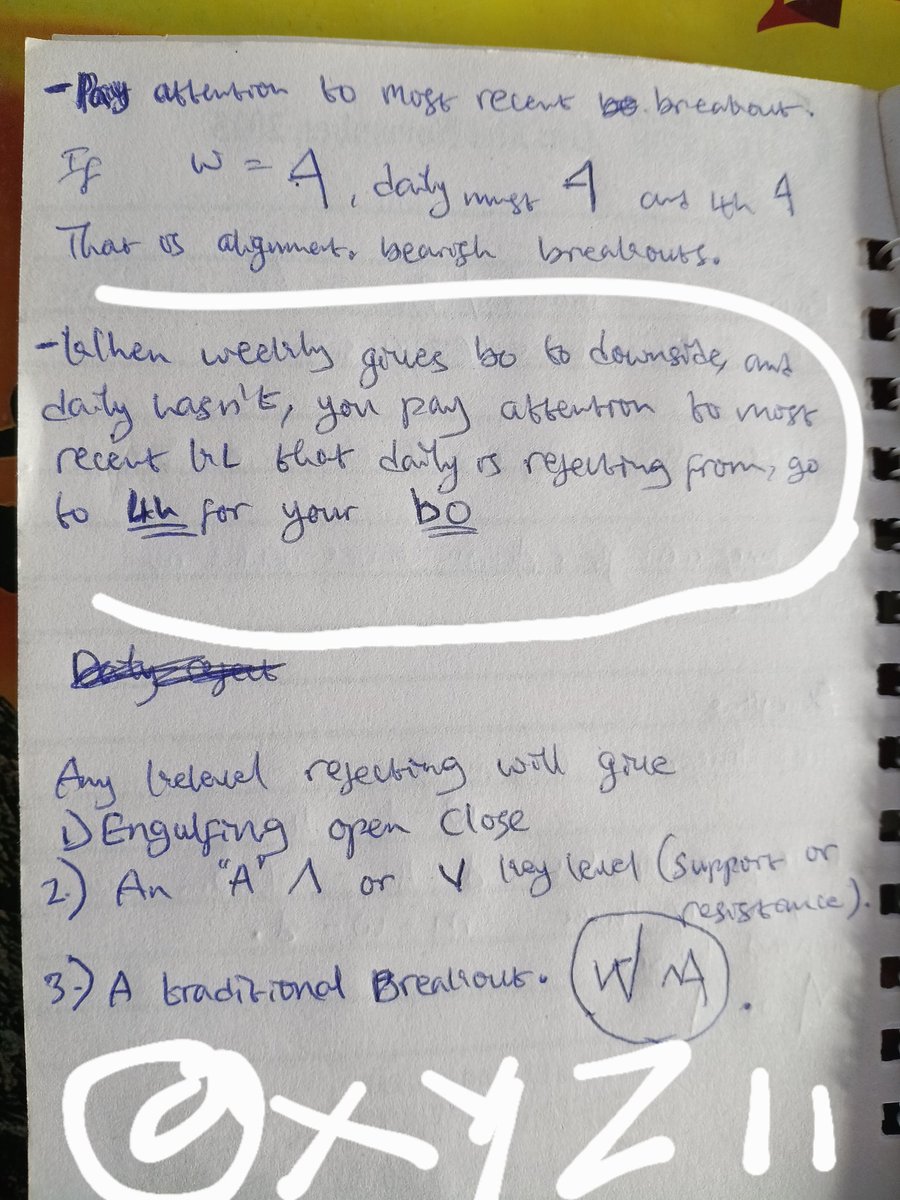 - Pay attention to most recent breakout.
If W = A, daily must A and 4h A
That is alignment. bearish breakouts.
- When weekly gives bo to downside, and
daily hasn't, you pay attention to most
recent KL that daily is rejecting from, go
to 4h for your bo
Any keylevel rejecting will give
1) Engulfing open close
2.) An "A" Λ or V key level (support or
resistance).
3.) A traditional Breakout.
@xyZ11